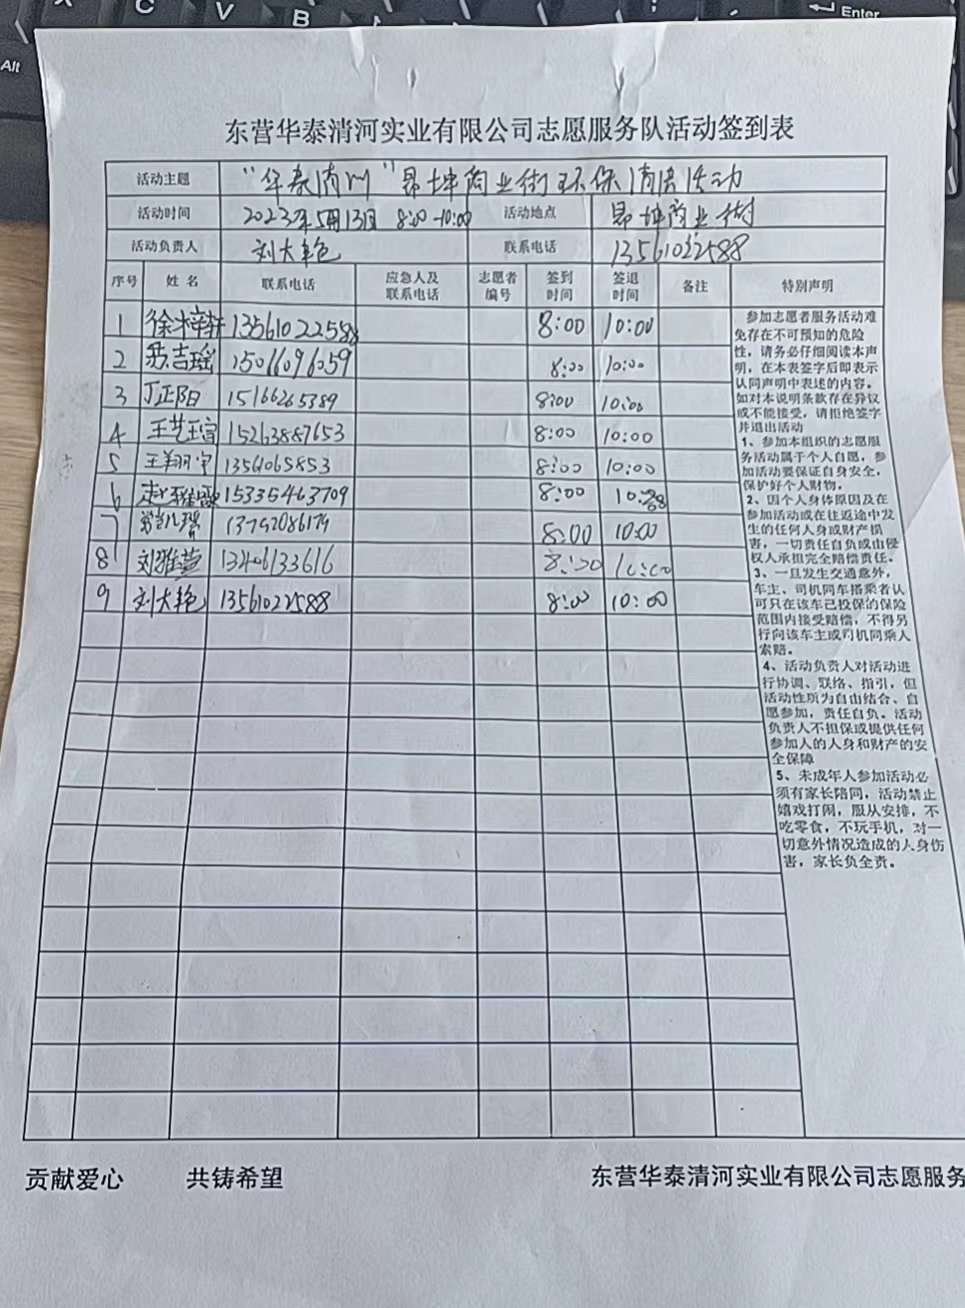 Alt
X
C
V
B
Enter
东营华泰清河实业有限公司志愿服务队活动签到表
活动主题 "华泰清河"昂坤商业街环保清洁活动
活动时间 2023年5月13日 8:00-10:00 活动地点 昂坤商业街
活动负责人 刘大艳 联系电话 13561022588
序号 姓名 联系电话 应急人及联系电话 志愿者编号 签到时间 签退时间 备注 特别声明
1 徐梓轩 13561022588 8:00 10:00
2 吉瑶 15066096059 8:00 10:00
3 丁正阳 15166265389 8:00 10:00
4 王艺 15263887653 8:00 10:00
5 王翔宇 1356065853 8:00 10:00
6 赵雅 15335463709 8:00 10:00
7 13792086179 8:00 10:00
8 刘雅萱 13406133616 8:00 10:00
9 刘大艳 13561022588 8:00 10:00
参加志愿者服务活动难
免存在不可预知的危险
性，请务必仔细阅读本声
明，在本表签字后即表示
认同声明中表述的内容。
如对本说明条款存在异议
或不能接受，请拒绝签字
并退出活动
1、参加本组织的志愿服
务活动属于个人自愿，参
加活动要保证自身安全，
保护好个人财物。
2、因个人身体原因及在
参加活动或在往返途中发
生的任何人身或财产损
害，一切责任自负或由侵
权人承担完全赔偿责任。
3、一旦发生交通意外，
车主、司机同车搭乘者认
可只在该车已投保的保险
范围内接受赔偿，不得另
行向该车主或司机同乘人
索赔。
4、活动负责人对活动进
行协调、联络、指引，但
活动性质为自由结合、自
愿参加，责任自负。活动
负责人不担保或提供任何
参加人的人身和财产的安
全保障
5、未成年人参加活动必
须有家长陪同，活动禁止
嬉戏打闹，服从安排，不
吃零食，不玩手机，对一
切意外情况造成的人身伤
害，家长负全责。
贡献爱心 共铸希望 东营华泰清河实业有限公司志愿服务